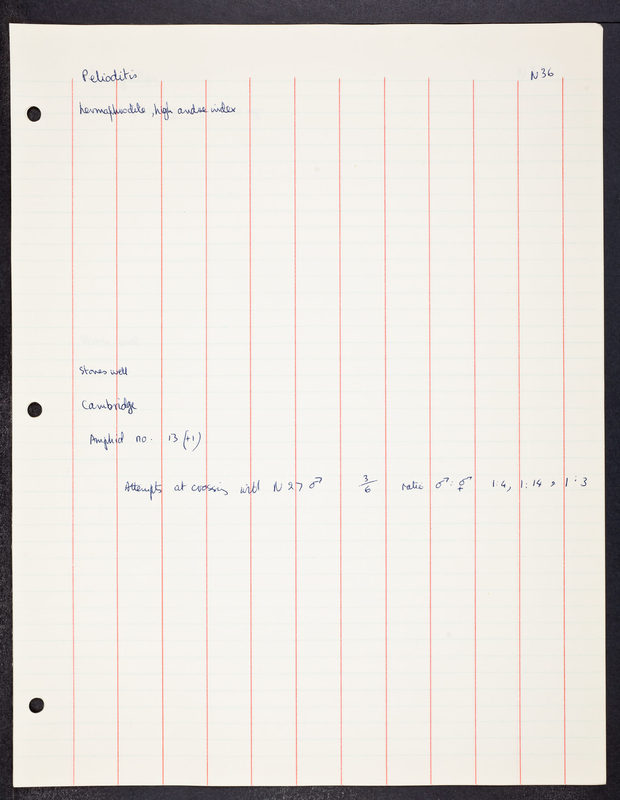 Pelioditis
N36
hermaphrodite, high andse index
Stores well
Cambridge
Amphid no. 13 (+1)
Attempts at crossing with N27 ♂ 3/6 ratio ♂:⚥ 1:4, 1:14, 1:3